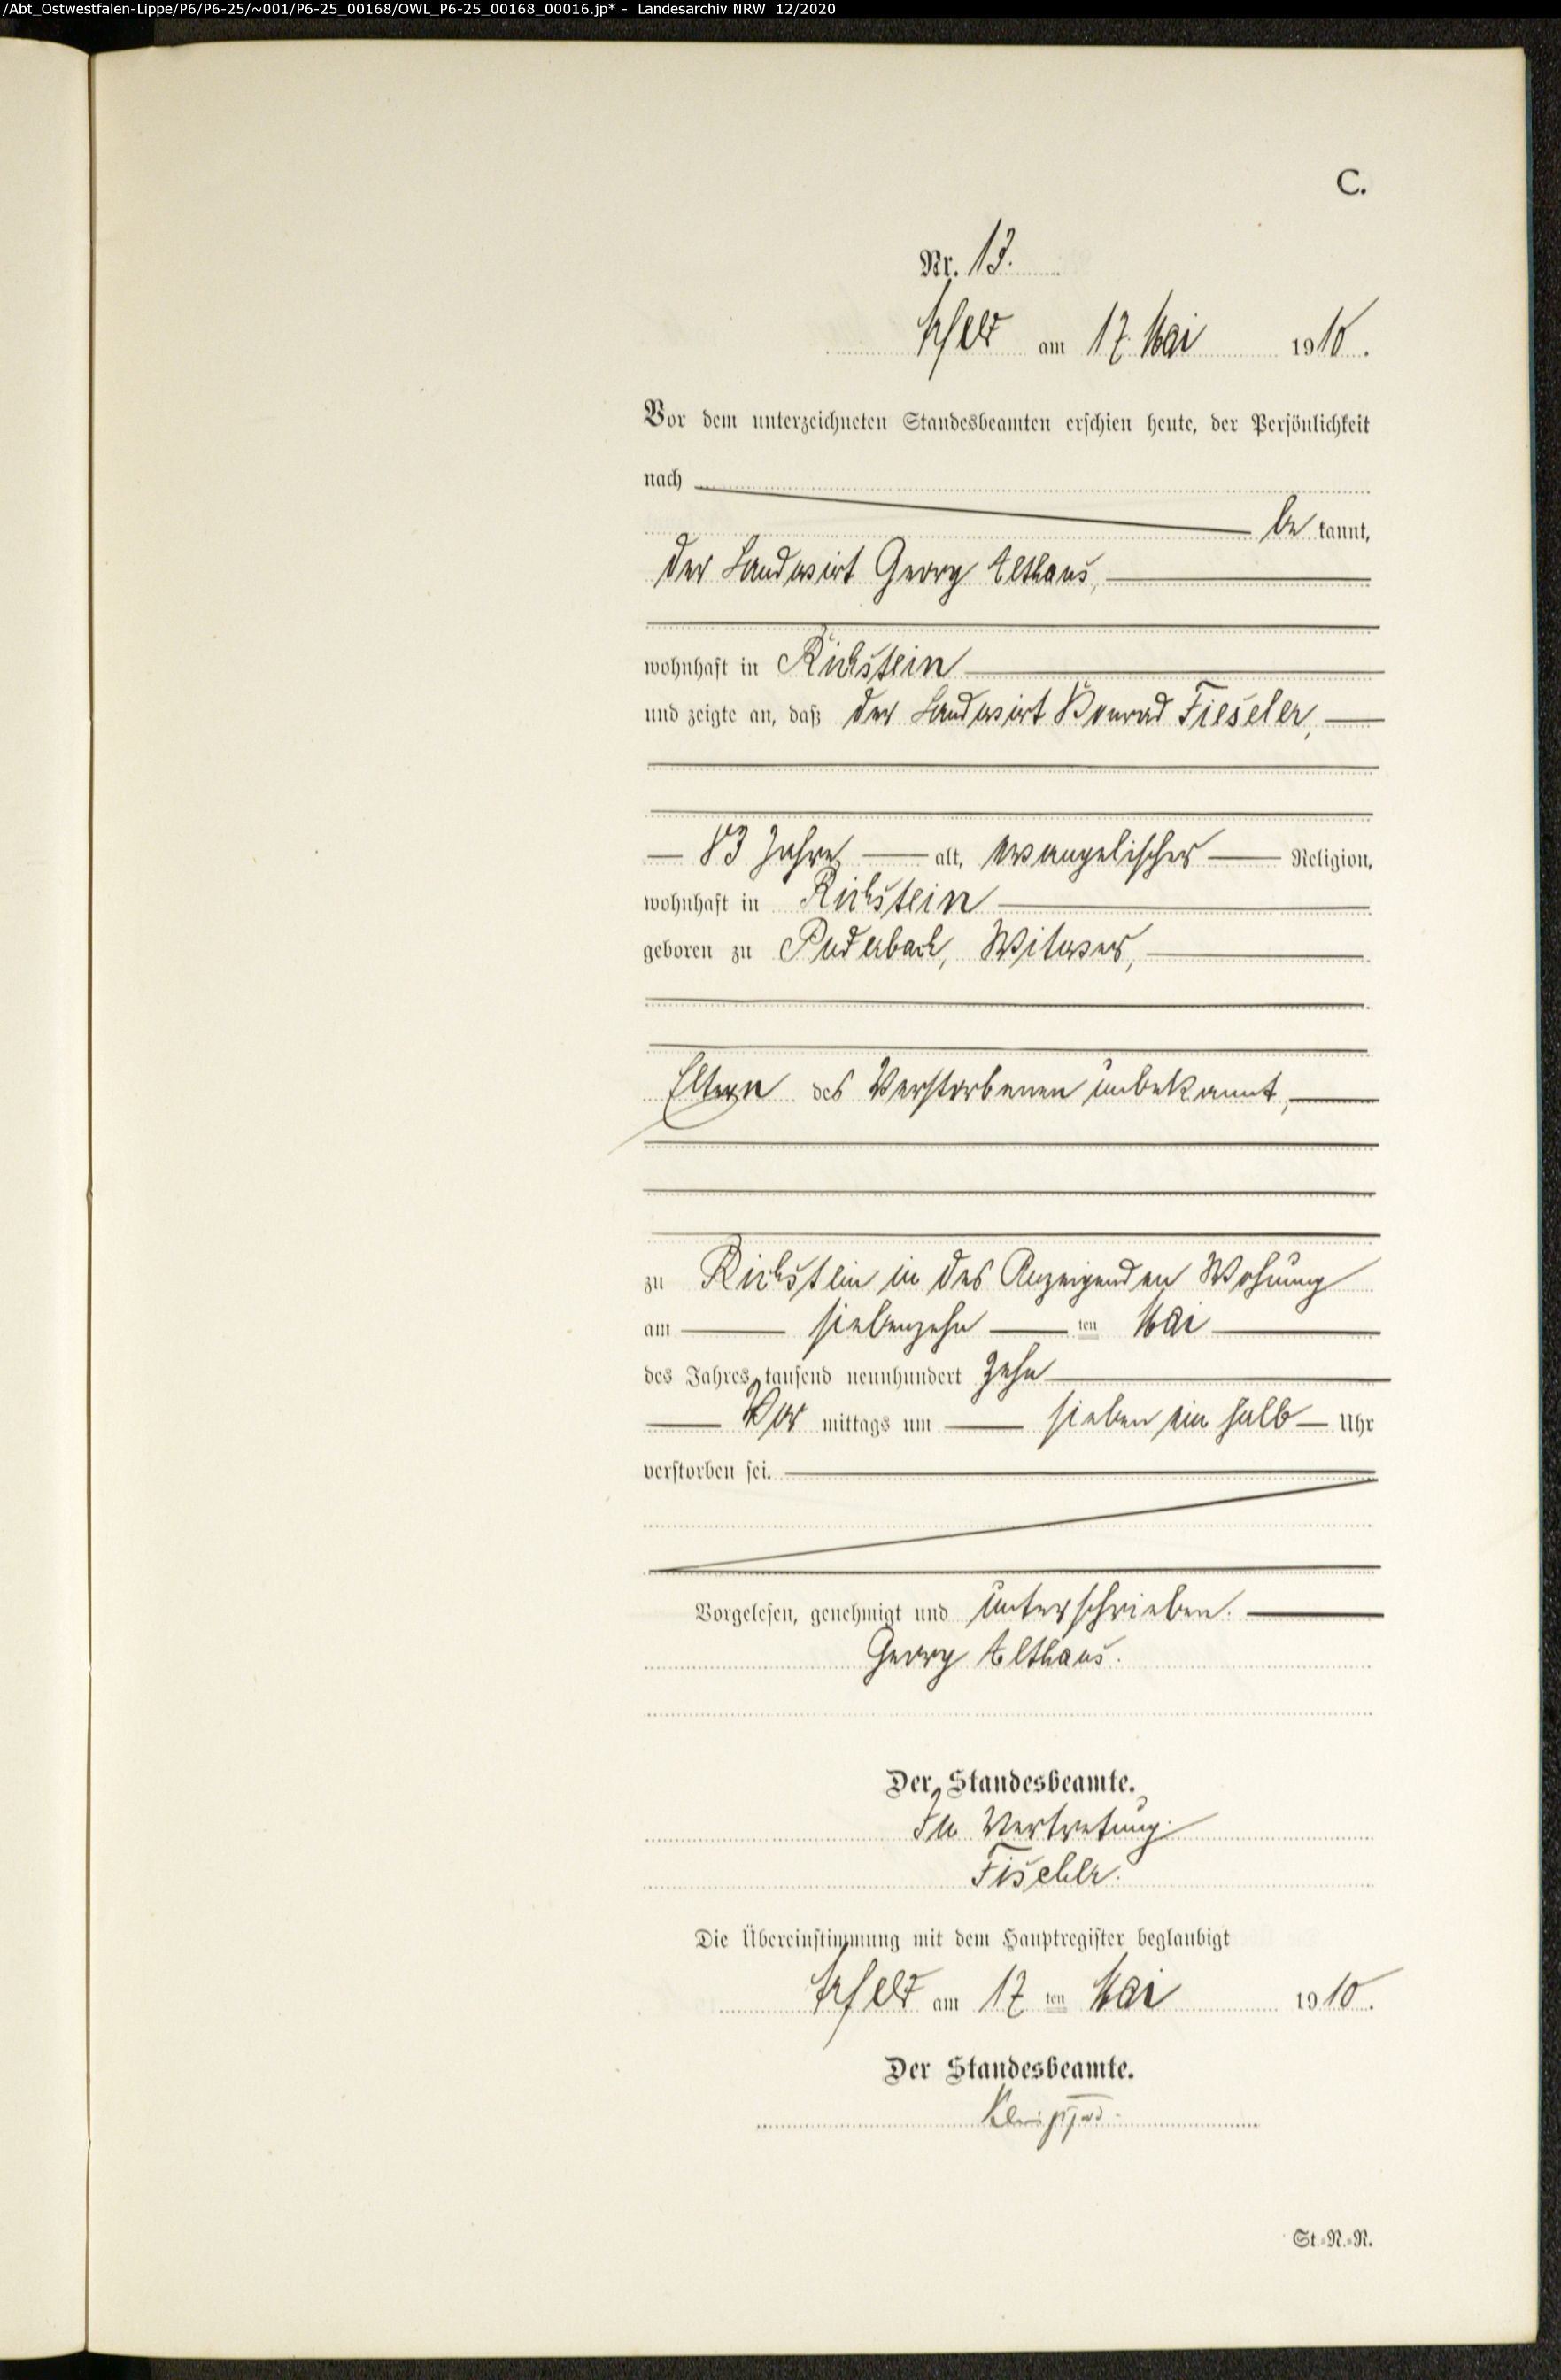 /Abt_Ostwestfalen-Lippe/P6/P6-25/~001/P6-25_00168/OWL_P6-25_00168_00016.jp* - Landesarchiv NRW 12/2020
C.
Nr. 13.
Arfeld am 17. Mai 1910.
Vor dem unterzeichneten Standesbeamten erschien heute, der Persönlichkeit
nach
be kannt,
der Landwirt Georg Althaus,
wohnhaft in Richstein
und zeigte an, daß der Landwirt Konrad Fieseler,
83 Jahre alt, evangelischer Religion,
wohnhaft in Richstein
geboren zu Puderbach, Witwer,
Eltern des Verstorbenen unbekannt,
zu Richstein in des Anzeigenden Wohnung
am siebenzehn ten Mai
des Jahres tausend neunhundert zehn
Vor mittags um sieben ein halb Uhr
verstorben sei.
Vorgelesen, genehmigt und unterschrieben.
Georg Althaus.
Der Standesbeamte.
In Vertretung.
Fischer.
Die Übereinstimmung mit dem Hauptregister beglaubigt
Arfeld am 17 ten Mai 1910.
Der Standesbeamte.
St.-N.-R.